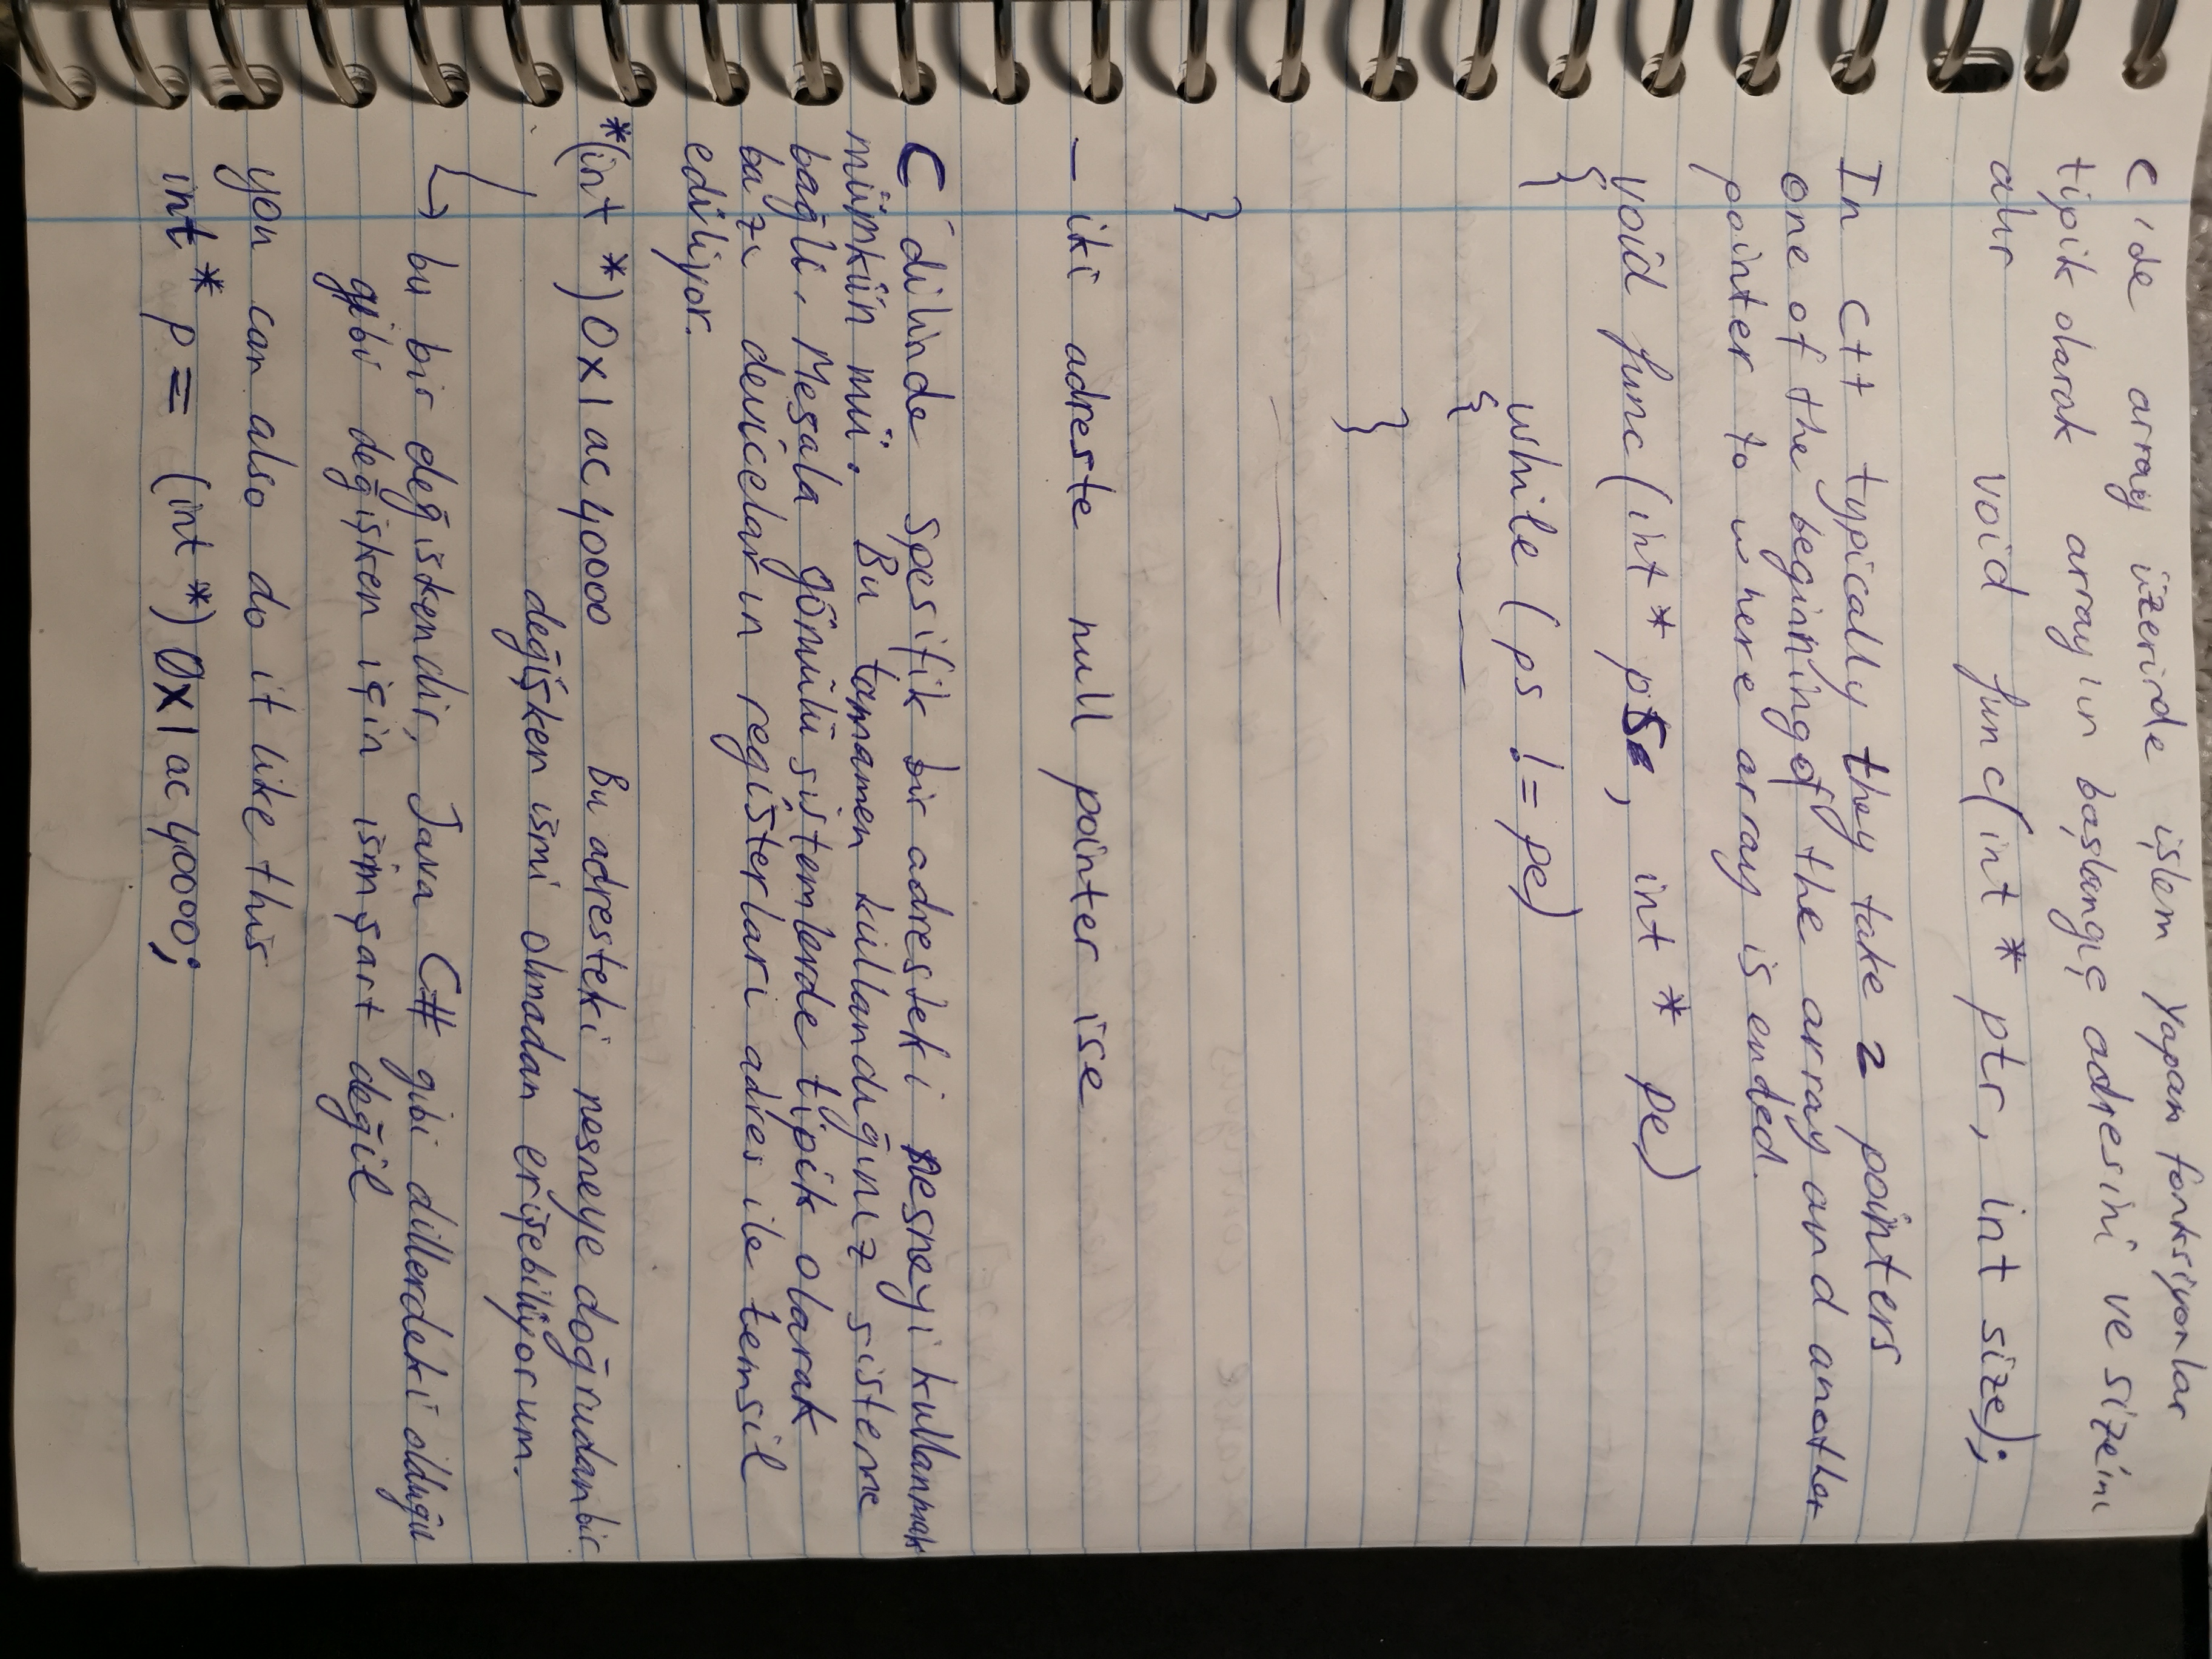 C'de array üzerinde işlem yapan fonksiyonlar
tipik olarak array'ın başlangıç adresini ve size'ını
alır void func(int * ptr, int size);
In C++ typically they take 2 pointers
one of the beginning of the array and another
pointer to where array is ended.
void func(int * ps, int * pe)
{
while (ps != pe)
{
}
}
- iki adreste null pointer ise
C dilinde spesifik bir adresteki nesneyi kullanmak
mümkün mü. Bu tamamen kullandığınız sisteme
bağlı. Mesala gömülü sistemlerde tipik olarak
bazı deviceların registerlari adres ile temsil
ediliyor.
*(int *) 0x1ac40000 Bu adresteki nesneye doğrudan bir
değişken ismi olmadan erişebiliyorum.
→ bu bir değişkendir, Java C# gibi dillerdeki olduğu
gibi değişken için isim şart değil
you can also do it like this
int * p = (int *) 0x1ac40000;